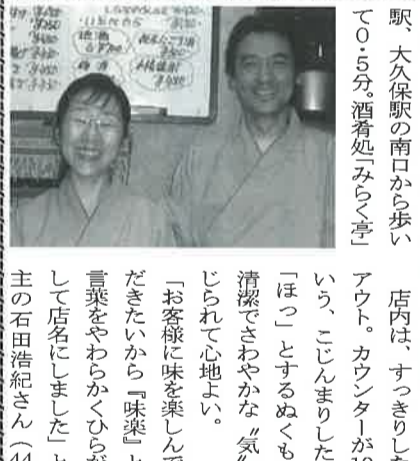 駅、大久保駅の南口から歩い
て0・5分。酒肴処「みらく亭」
店内は、すっきりした
アウト。カウンターが
いう、こじんまりした
「ほっ」とするぬくも
清潔でさわやかな〝気〟
じられて心地よい。
「お客様に味を楽しんで
だきたいから『味楽』と
言葉をやわらかくひらが
して店名にしました」と
主の石田浩紀さん（44